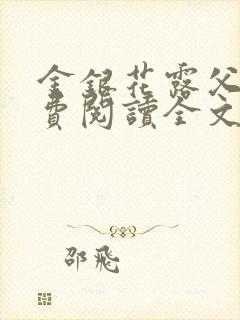 金銀花露父
費閱讀全文
邵飛